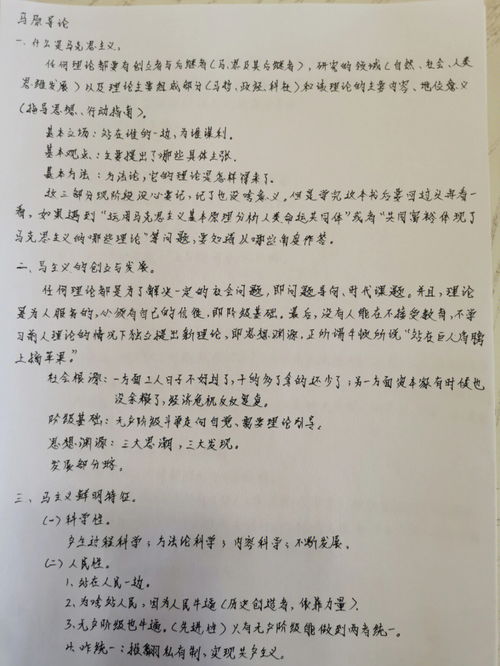 马原导论
一、什么是马克思主义。
任何理论都要有创立者与后继者(马、恩及其后继者),研究的领域(自然、社会、人类
思维发展)以及理论主要组成部分(马哲、政经、科社)和该理论的主要内容、地位意义
(指导思想、行动指南)。
基本立场:站在谁的一边,为谁谋利。
基本观点:主要提出了哪些具体主张。
基本方法:方法论,它的理论是怎样得来了。
这三部分现阶段没必要记,记了也没啥意义。但是学完这本书后要回过头再看一
看,如果遇到“运用马克思主义基本原理分析人类命运共同体”或者“共同富裕体现了
马克思主义的哪些理论”等问题,要知道从哪些角度作答。
二、马主义的创立与发展。
任何理论都是为了解决一定的社会问题,即问题导向、时代课题。并且,理论
是为人服务的,必须有自己的信徒,即阶级基础。最后,没有人能在不接受教育,不学
习前人理论的情况下独立提出新理论,即思想渊源,正所谓牛顿所说“站在巨人肩膀
上摘苹果。”
社会根源:一方面工人日子不好过了,干的多了拿的还少了;另一方面资本家有时候也
没余粮了,经济危机反反复复。
阶级基础:无产阶级斗争走向自觉、需要理论引导。
思想渊源:三大思潮,三大发现。
发展部分略。
三、马主义鲜明特征。
(一)科学性。
产生过程科学;方法论科学;内容科学;不断发展。
(二)人民性。
1、站在人民一边。
2、为啥站人民,因为人民牛逼(历史创造者,依靠力量)。
3、无产阶级也牛逼。(先进性)只有无产阶级能做到两者统一。
4、咋统一:推翻私有制,实现共产主义。